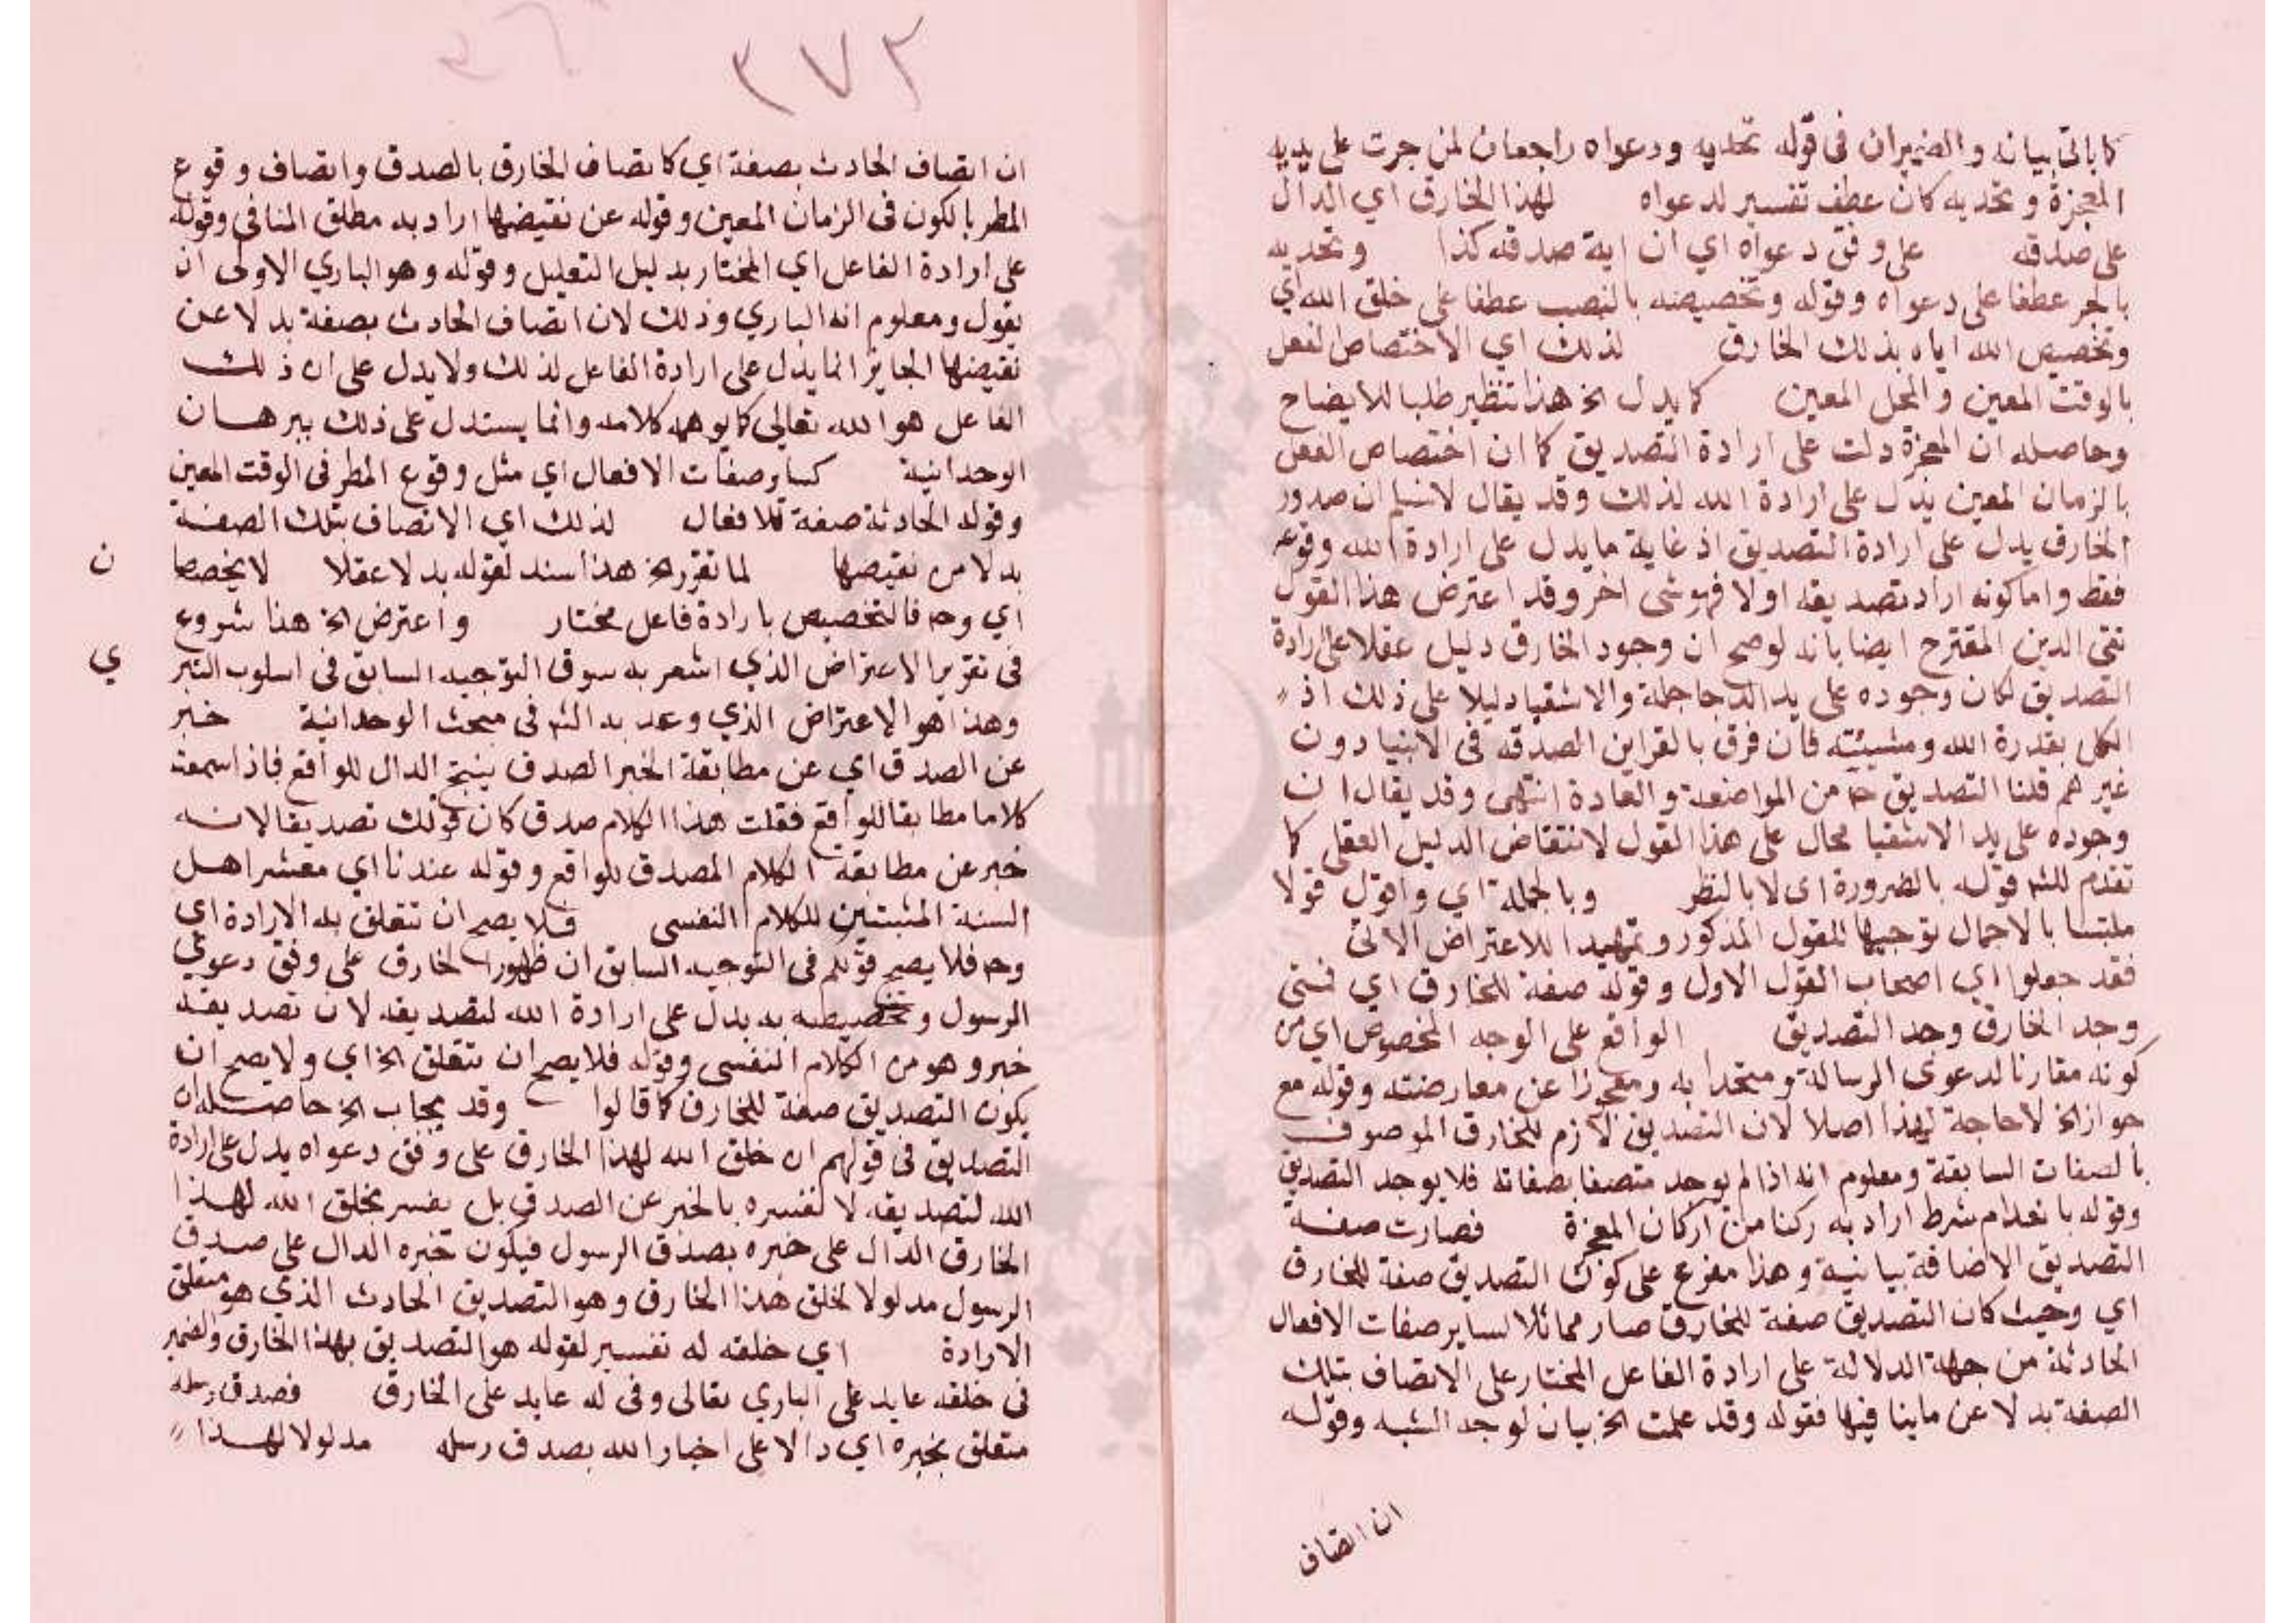 كما ياتي بيانه والضميران في قوله تحديه ودعواه راجعان لمن جرت على يديه
المعجزة وتحديه كان عطف تفسير لدعواه لهذا الخارق اي الدال
على صدقه على وفق دعواه اي ان اية صدقه كذا وتحديه
بالجر عطفا على دعواه وقوله وتخصيصه بالنصب عطفا على خلق الله اي
وتخصيص الله اياه بذلك الخارق لذلك اي الاختصاص لفعل
بالوقت المعين والمحل المعين كما يدل الخ هذا تنظير طلبا للايضاح
وحاصله ان المعجزة دلت على ارادة التصديق كما ان اختصاص الفعل
بالزمان المعين يدل على ارادة الله لذلك وقد يقال لا نسلم ان صدور
الخارق يدل على ارادة التصديق اذ غاية ما يدل على ارادة الله وقوعه
فقط واما كونه اراد تصديقه اولا فهو شي اخر وقد اعترض هذا القول
تقي الدين المقترح ايضا بانه لو صح ان وجود الخارق دليل عقلا على ارادة
التصديق لكان وجوده على يد الدجاجلة والاشقيا دليلا على ذلك اذ
الكل بقدرة الله ومشيئته فان فرق بالقراين الصدقه في الانبيا دون
غيرهم قلنا التصديق ح من المواضعة والعادة انتهى وقد يقال ان
وجوده على يد الاشقيا محال على هذا القول لانتقاض الدليل العقلي كما
تقدم للشه قوله بالضرورة اي لا بالنظر وبالجملة اي واقول قولا
ملتبسا بالاجمال توجيها للقول المذكور وتمهيدا للاعتراض الاتي
فقد جعلوا اي اصحاب القول الاول وقوله صفة للخارق اي فمتى
وجد الخارق وجد التصديق الواقع على الوجه المخصوص اي من
كونه مقارنا لدعوى الرسالة ومتحدا به ومعجزا عن معارضته وقوله مع
جواز الخ لا حاجة لهذا اصلا لان التصديق لازم للخارق الموصوف
بالصفات السابقة ومعلوم انه اذا لم يوجد متصفا بصفاته فلا يوجد التصديق
وقوله بانعدام شرط اراد به ركنا من اركان المعجزة فصارت صفة
التصديق الاضافة بيانية وهذا مفرع على كون التصديق صفة للخارق
اي وحيث كان التصديق صفة للخارق صار مماثلا لساير صفات الافعال
الحادثة من جهة الدلالة على ارادة الفاعل المختار على الاتصاف بتلك
الصفة بدلا عن ما ينافيها فقوله وقد علمت الخ بيان لوجه الشبه وقوله
ان اتصاف
٢٧٣
ان اتصاف الحادث بصفة اي كاتصاف الخارق بالصدق واتصاف وقوع
المطر بالكون في الزمان المعين وقوله عن نقيضها اراد به مطلق المنافي وقوله
على ارادة الفاعل اي المختار بدليل التعليل وقوله وهو الباري الاولى ان
يقول ومعلوم انه الباري وذلك لان اتصاف الحادث بصفة بدلا عن
نقيضها الجايز انما يدل على ارادة الفاعل لذلك ولا يدل على ان ذلك
الفاعل هو الله تعالى كما يوهمه كلامه وانما يستدل على ذلك ببرهان
الوحدانية كساير صفات الافعال اي مثل وقوع المطر في الوقت المعين
وقوله الحادثة صفة للافعال لذلك اي الاتصاف بتلك الصفة
بدلا من نقيضها لما تقرر الخ هذا سند لقوله بدلا عقلا لا يخصصا
ن
اي وح فالتخصيص بارادة فاعل مختار واعترض الخ هذا شروع
في تقرير الاعتراض الذي اشعر به سوق التوجيه السابق في اسلوب التبر
ي
وهذا هو الاعتراض الذي وعد به الشه في مبحث الوحدانية خبر
عن الصدق اي عن مطابقة الخبر الصدق ينبج الدال للواقع فاذا سمعت
كلاما مطابقا للواقع فقلت هذا الكلام صدق كان قولك تصديقا لانه
خبر عن مطابقة الكلام المصدق للواقع وقوله عندنا اي معشر اهل
السنة المثبتين للكلام النفسي فلا يصح ان تتعلق به الارادة اي
وح فلا يصح قولكم في التوجيه السابق ان ظهور الخارق على وفق دعوي
الرسول وتخصيصه به يدل على ارادة الله لتصديقه لان تصديقه
خبر وهو من الكلام النفسي وقوله فلا يصح ان تتعلق الخ اي ولا يصح ان
يكون التصديق صفة للخارق كما قالوا وقد يجاب الخ حاصله ان
التصديق في قولهم ان خلق الله لهذا الخارق على وفق دعواه يدل على ارادة
الله لتصديقه لا نفسره بالخبر عن الصدق بل يفسر بخلق الله لهذا
الخارق الدال على خبره بصدق الرسول فيكون خبره الدال على صدق
الرسول مدلولا لخلق هذا الخارق وهو التصديق الحادث الذي هو متعلق
الارادة اي خلقه له تفسير لقوله هو التصديق بهذا الخارق والضمير
في خلقه عايد على الباري تعالى وفي له عايد على الخارق فصدق رسله
متعلق بخبره اي دالا على اخبار الله بصدق رسله مدلولا لهذا